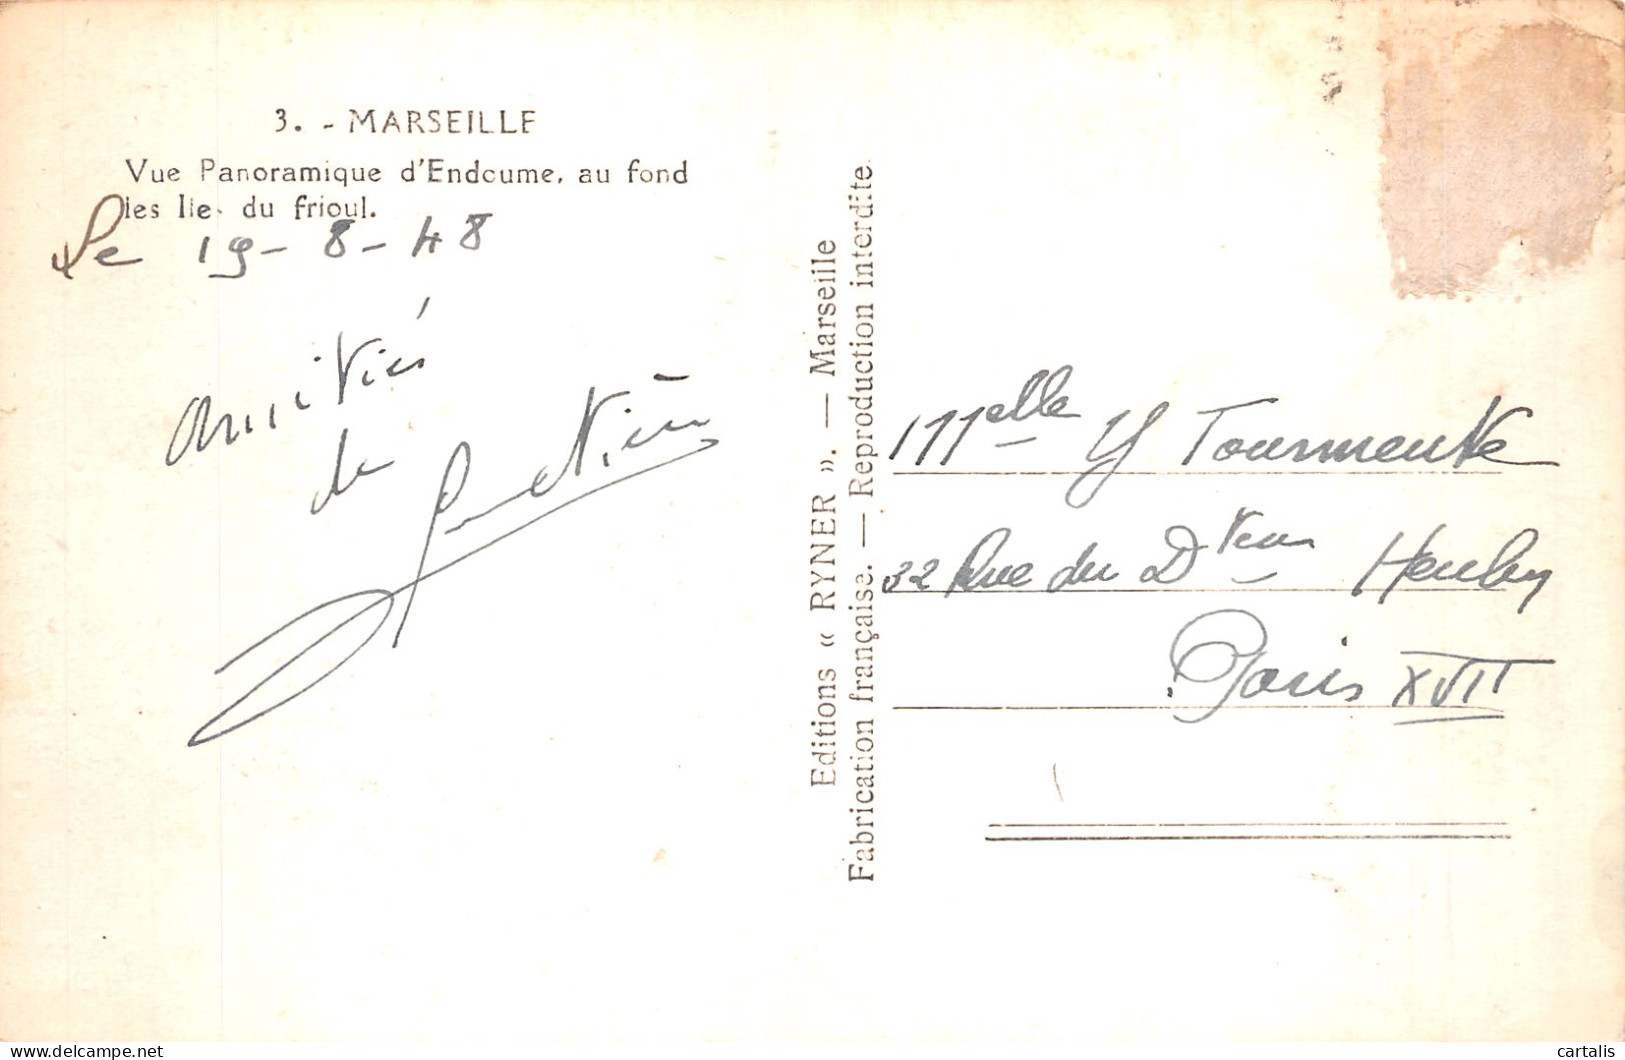 3. - MARSEILLE
Vue Panoramique d'Endoume, au fond
les Iles du frioul.
Le 19-8-48
amitiés
de
Editions « RYNER ». — Marseille
Fabrication française. — Reproduction interdite
Melle Y Tourmente
32 Rue du Dteur Heuley
Paris XVII
delcampe.net
cartalis